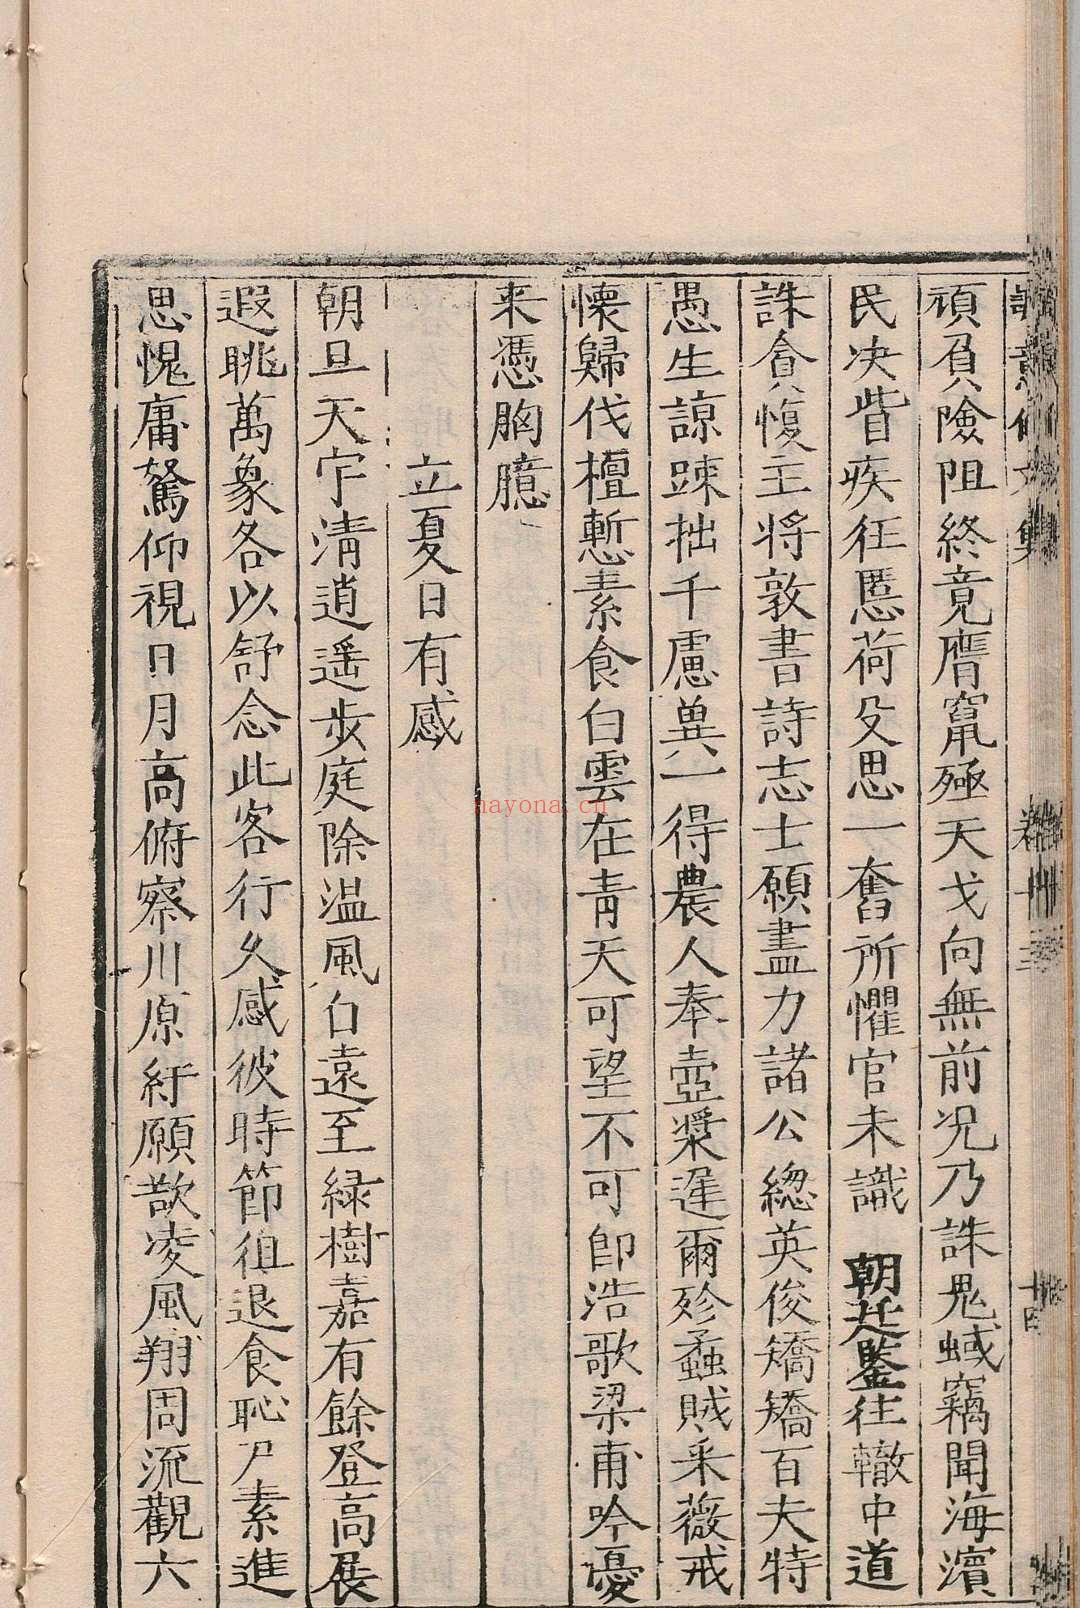 誠意伯文集 卷十三 十四
頑負險阻終竟膺竄殛天戈向無前况乃誅鬼蜮竊聞海濱
民决眥疾狂慝荷殳思一奮所懼官未識 朝廷鑒往轍中道
誅貪愎主將敦書詩志士願盡力諸公總英俊矯矯百夫特
愚生諒踈拙千慮兾一得農人奉壺漿遲爾殄蟊賊采薇戒
懷歸伐檀慙素食白雲在青天可望不可卽浩歌梁甫吟憂
来憑胸臆
立夏日有感
朝旦天宇清逍遥步庭除温風自遠至緑樹嘉有餘登高展
遐眺萬象各以舒念此客行久感彼時節徂退食恥尸素進
思愧庸駑仰視日月高俯察川原紆願歆凌風翔周流觀六
nayona.cn